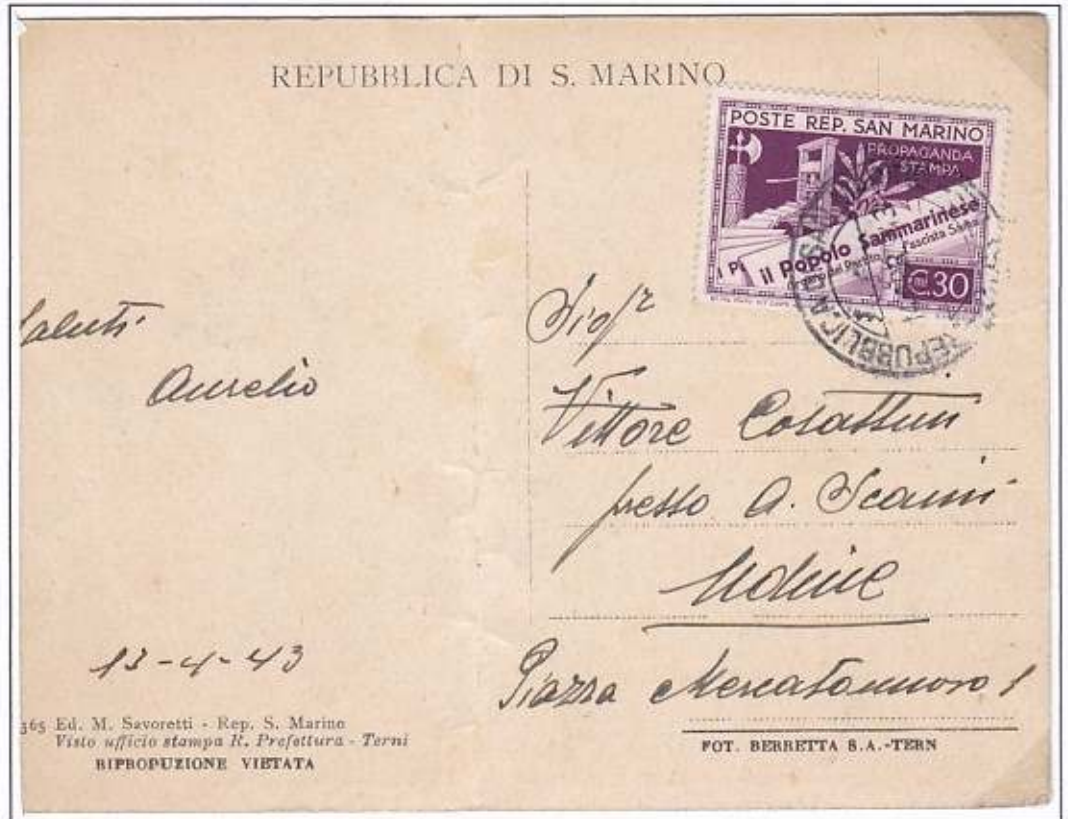 REPUBBLICA DI S. MARINO
POSTE REP. SAN MARINO
PROPAGANDA
STAMPA
Il Popolo Sammarinese
del Partito Fascista Sam
C.30
REPUBBLICA
Saluti
Aurelio
Sigr
Vittore Cosattini
presso A. Scaini
Udine
Piazza Mercatonuovo 1
13-4-43
365 Ed. M. Savoretti - Rep. S. Marino
Visto ufficio stampa R. Prefettura - Terni
RIPROPUZIONE VIETATA
FOT. BERRETTA S.A.-TERN